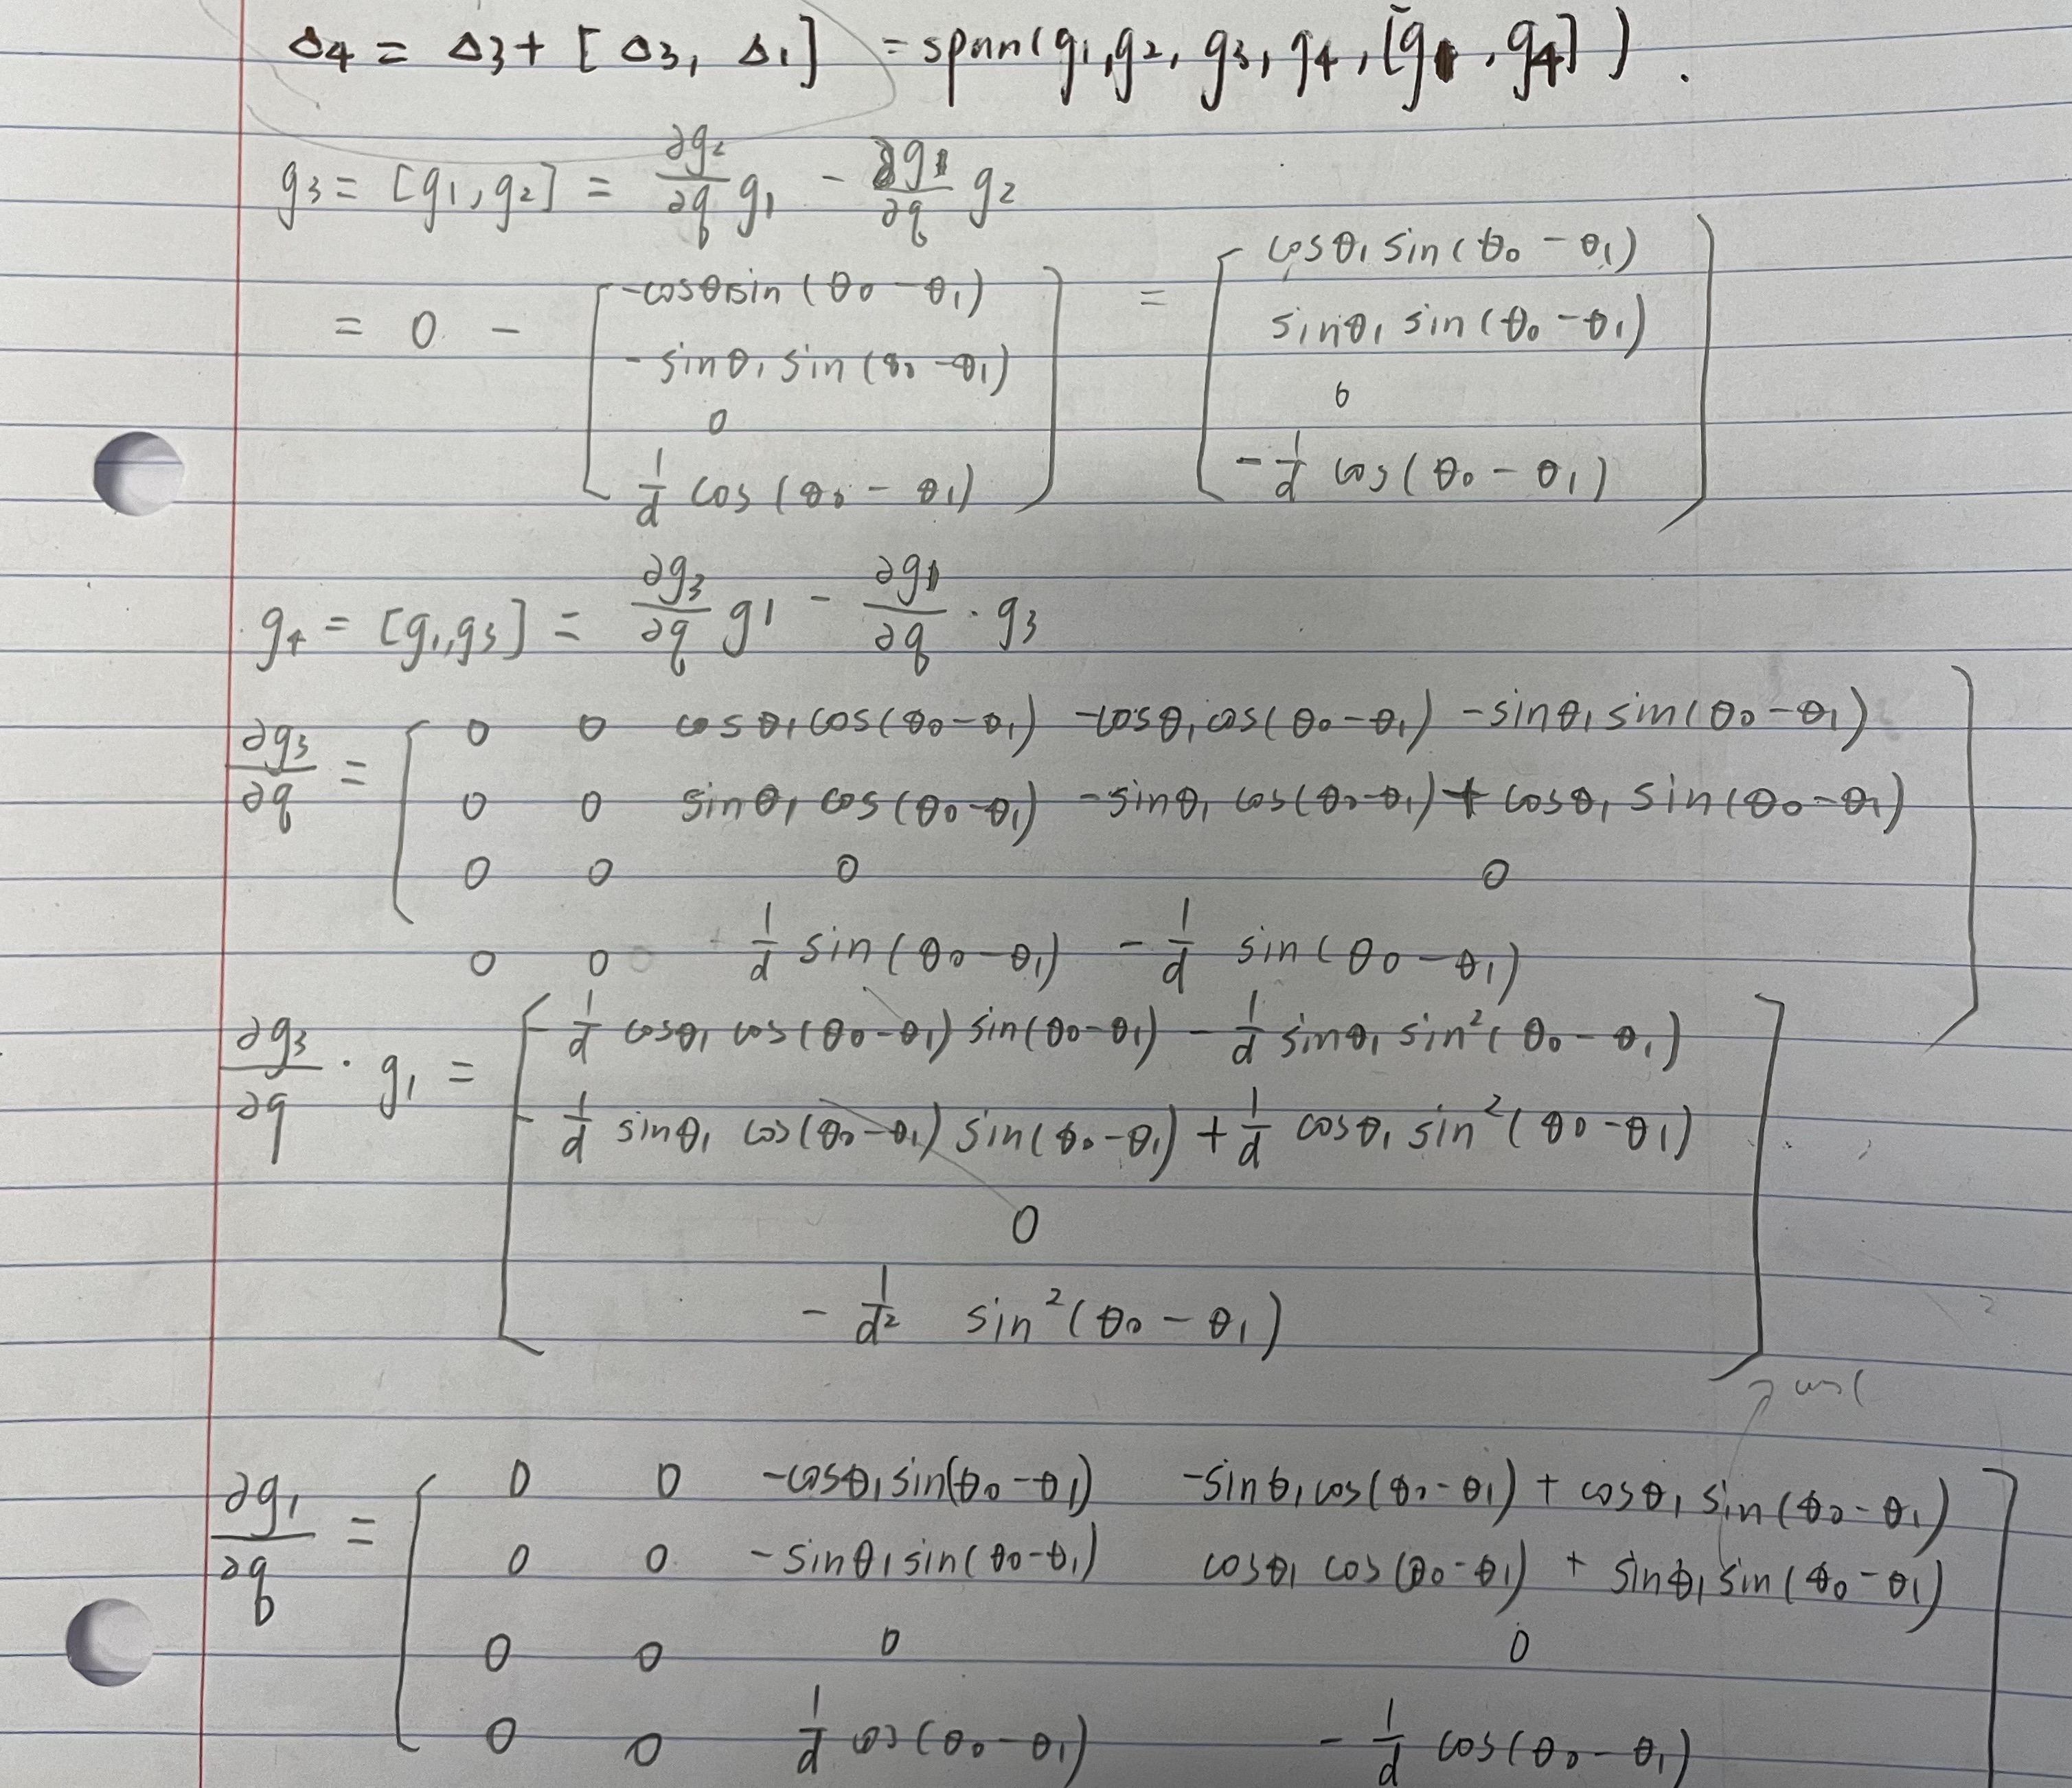 Δ4 = Δ3 + [Δ3, Δ1] = span(g1, g2, g3, g4, [g1, g4]).
g3 = [g1, g2] = ∂g2/∂q g1 - ∂g1/∂q g2
= 0 - [ -cosθ1 sin(θ0 - θ1) ; -sinθ1 sin(θ0 - θ1) ; 0 ; 1/d cos(θ0 - θ1) ] = [ cosθ1 sin(θ0 - θ1) ; sinθ1 sin(θ0 - θ1) ; 0 ; -1/d cos(θ0 - θ1) ]
g4 = [g1, g3] = ∂g3/∂q g1 - ∂g1/∂q · g3
∂g3/∂q = [ 0 0 cosθ1 cos(θ0 - θ1) -cosθ1 cos(θ0 - θ1) - sinθ1 sin(θ0 - θ1)
0 0 sinθ1 cos(θ0 - θ1) -sinθ1 cos(θ0 - θ1) + cosθ1 sin(θ0 - θ1)
0 0 0 0
0 0 1/d sin(θ0 - θ1) -1/d sin(θ0 - θ1) ]
∂g3/∂q · g1 = [ -1/d cosθ1 cos(θ0 - θ1) sin(θ0 - θ1) - 1/d sinθ1 sin²(θ0 - θ1)
-1/d sinθ1 cos(θ0 - θ1) sin(θ0 - θ1) + 1/d cosθ1 sin²(θ0 - θ1)
0
-1/d² sin²(θ0 - θ1) ]
∂g1/∂q = [ 0 0 -cosθ1 sin(θ0 - θ1) -sinθ1 cos(θ0 - θ1) + cosθ1 sin(θ0 - θ1)
0 0 -sinθ1 sin(θ0 - θ1) cosθ1 cos(θ0 - θ1) + sinθ1 sin(θ0 - θ1)
0 0 0 0
0 0 1/d cos(θ0 - θ1) -1/d cos(θ0 - θ1)